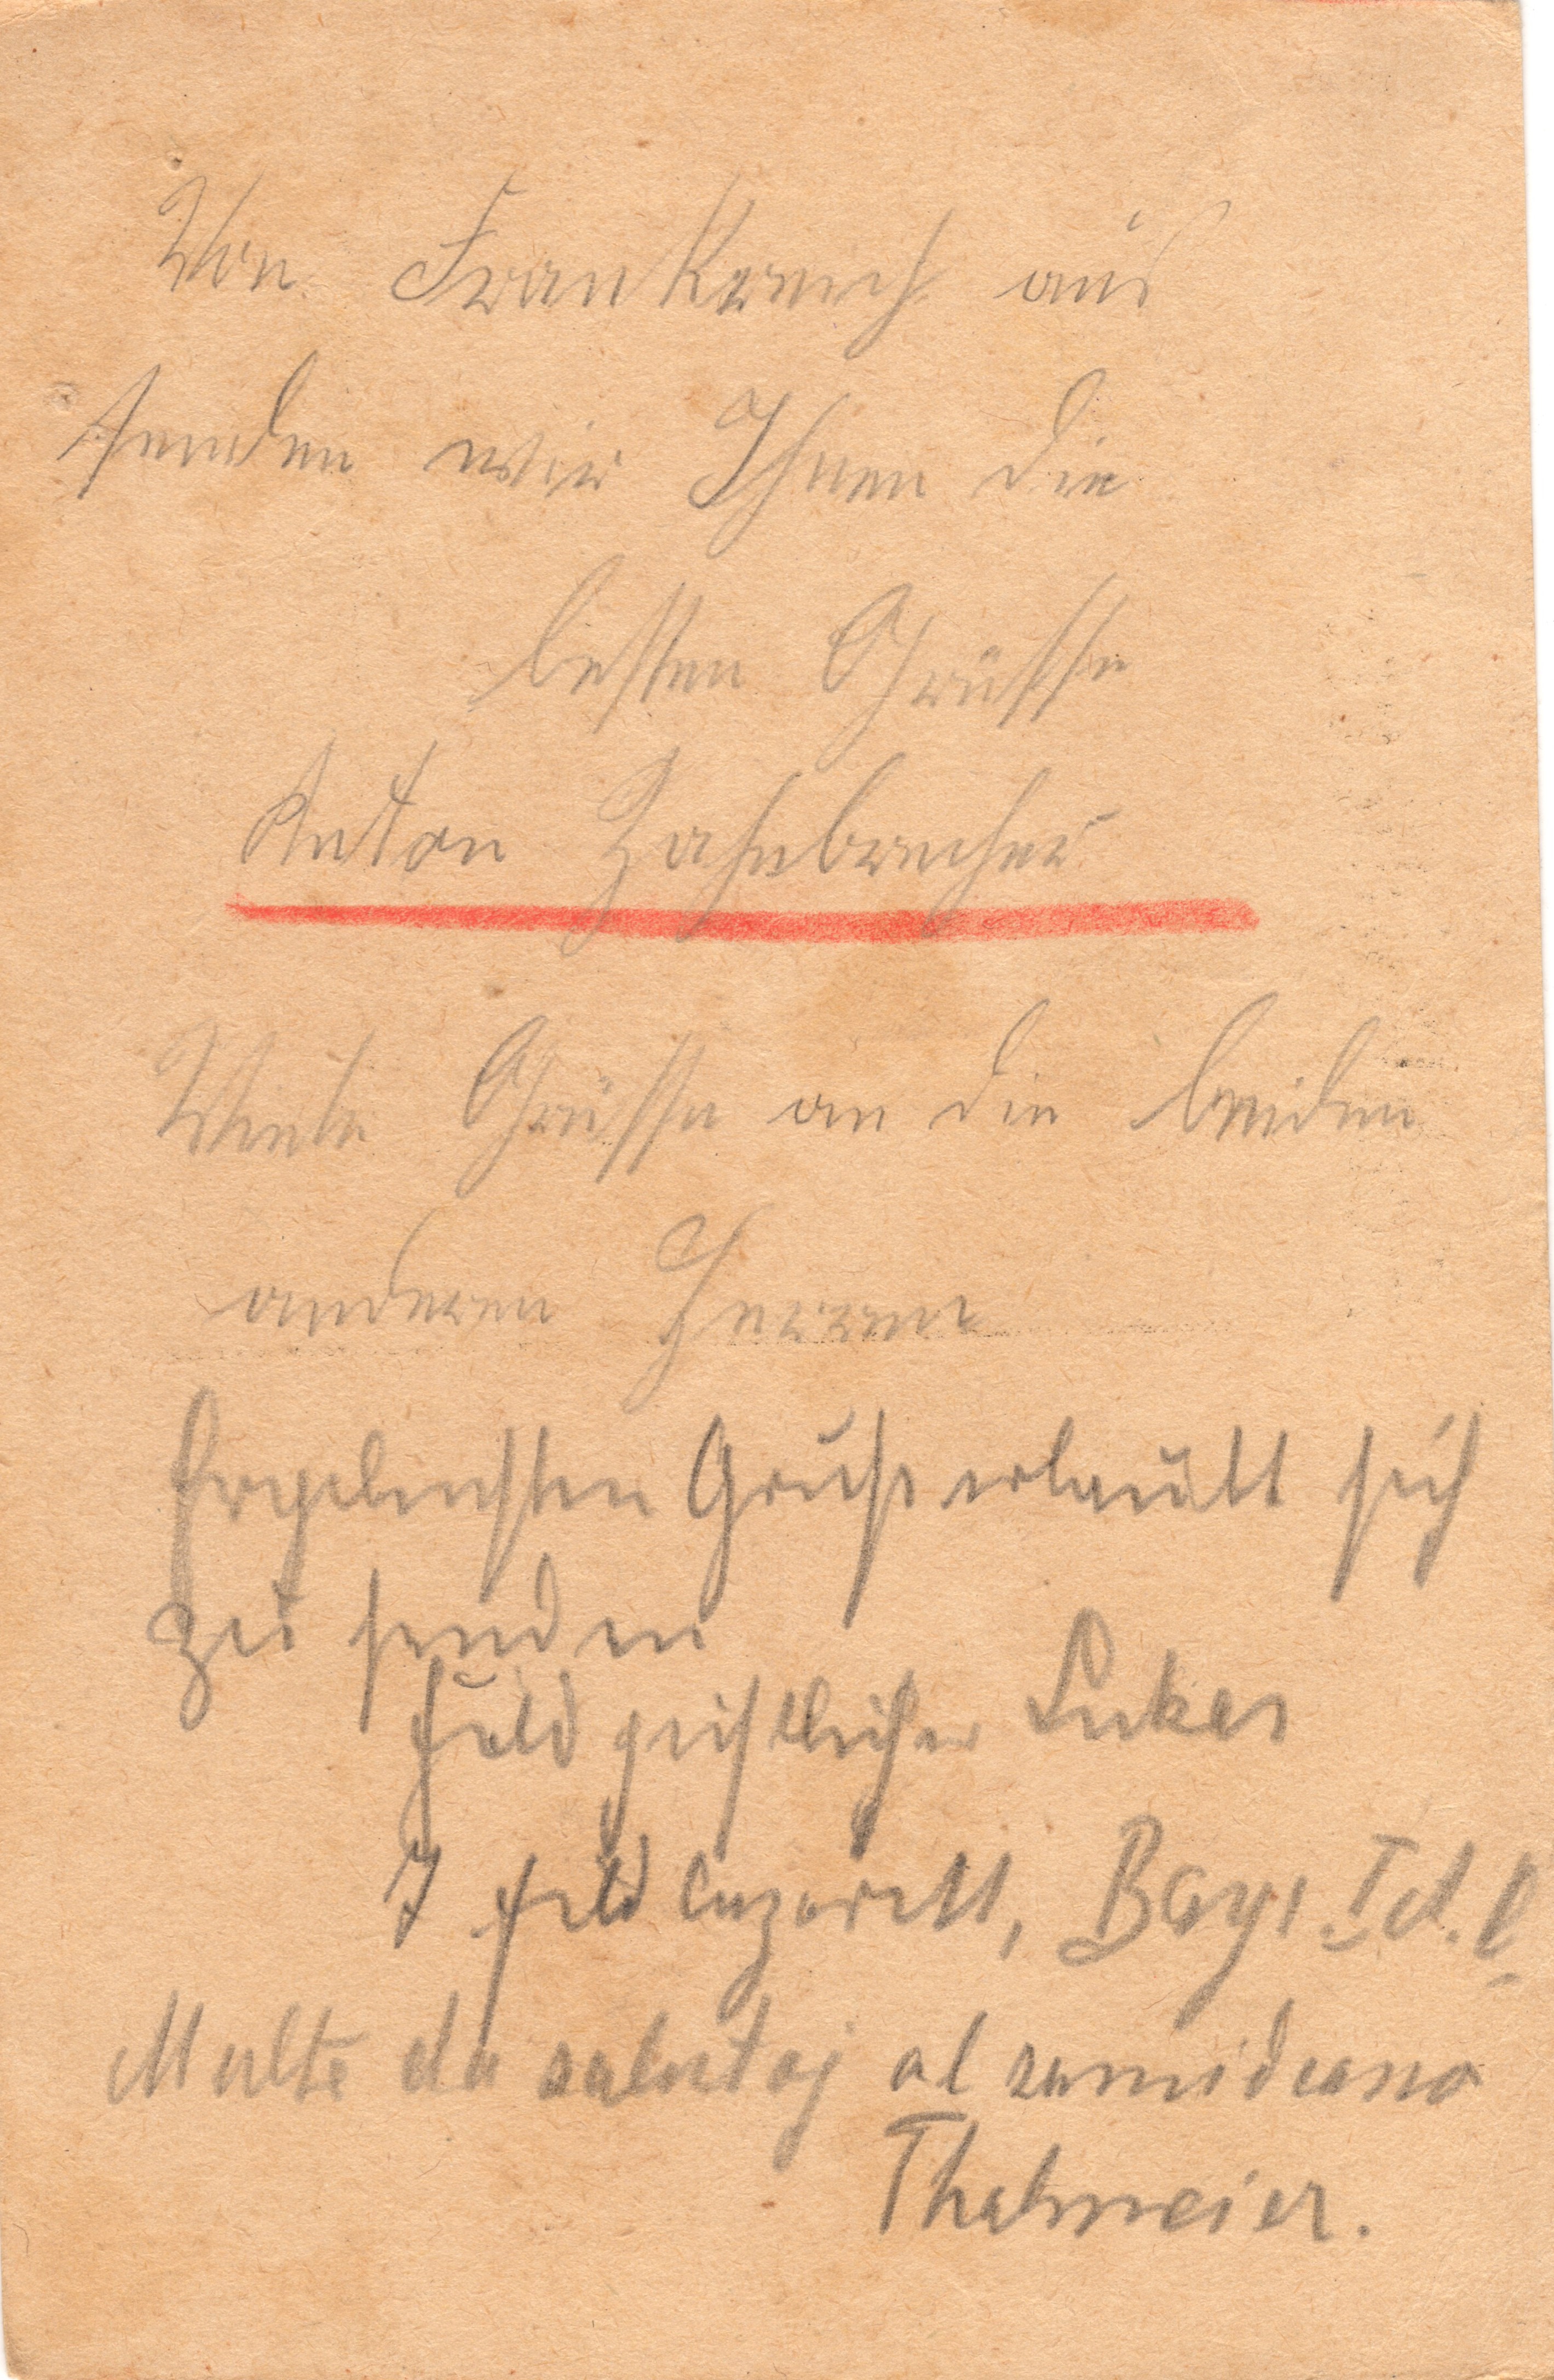 Von Frankreich aus
senden wir Ihnen die
besten Grüsse
Anton Zahnbrecher
Viele Grüsse an die beiden
anderen Herren
Ergebensten Gruß erlaubt sich
zu senden
Feldgeistlicher Lukas
7 Feldlazarett, Bayr. I
Multe da salutoj al samideano
Thalmeier.